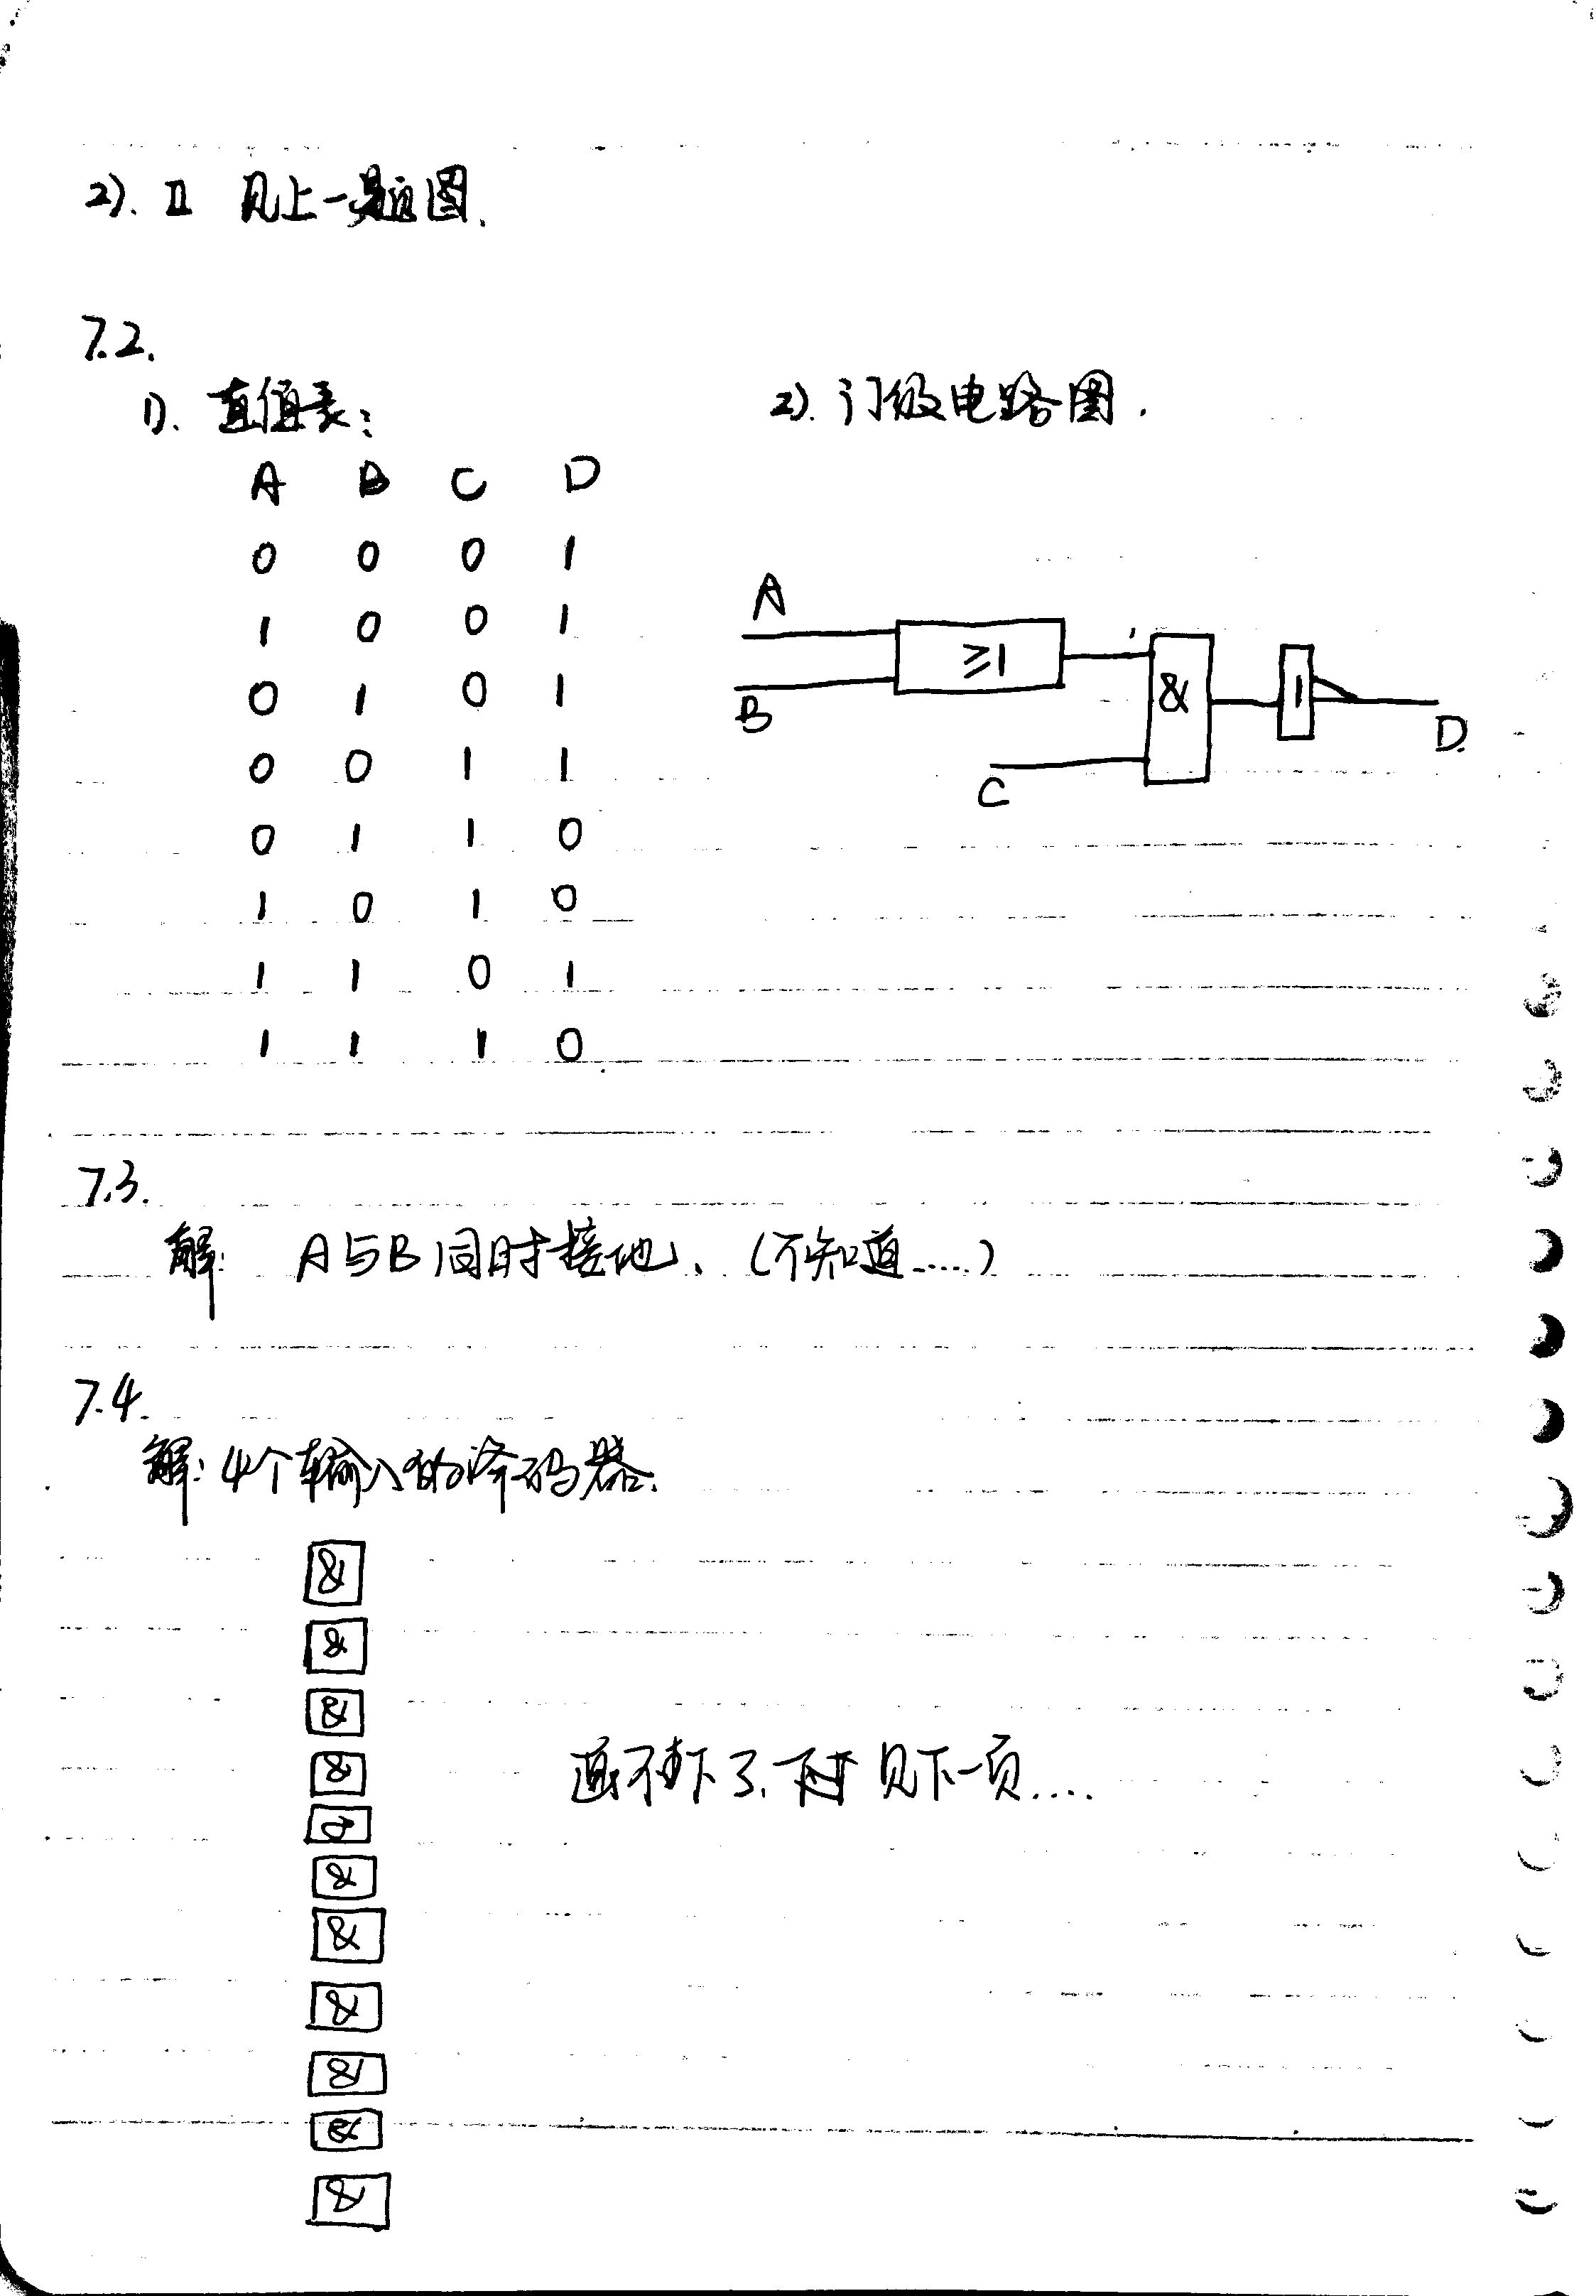 2). II 见上一题图.
7.2.
1). 真值表:
A B C D
0 0 0 1
1 0 0 1
0 1 0 1
0 0 1 1
0 1 1 0
1 0 1 0
1 1 0 1
1 1 1 0
2). 门级电路图.
A
≥1
B
&
1
C
D
7.3.
解: A与B同时接地、(不知道.....)
7.4.
解: 4个输入的译码器.
&
&
&
&
&
&
&
&
&
&
画不下了, 见下一页....